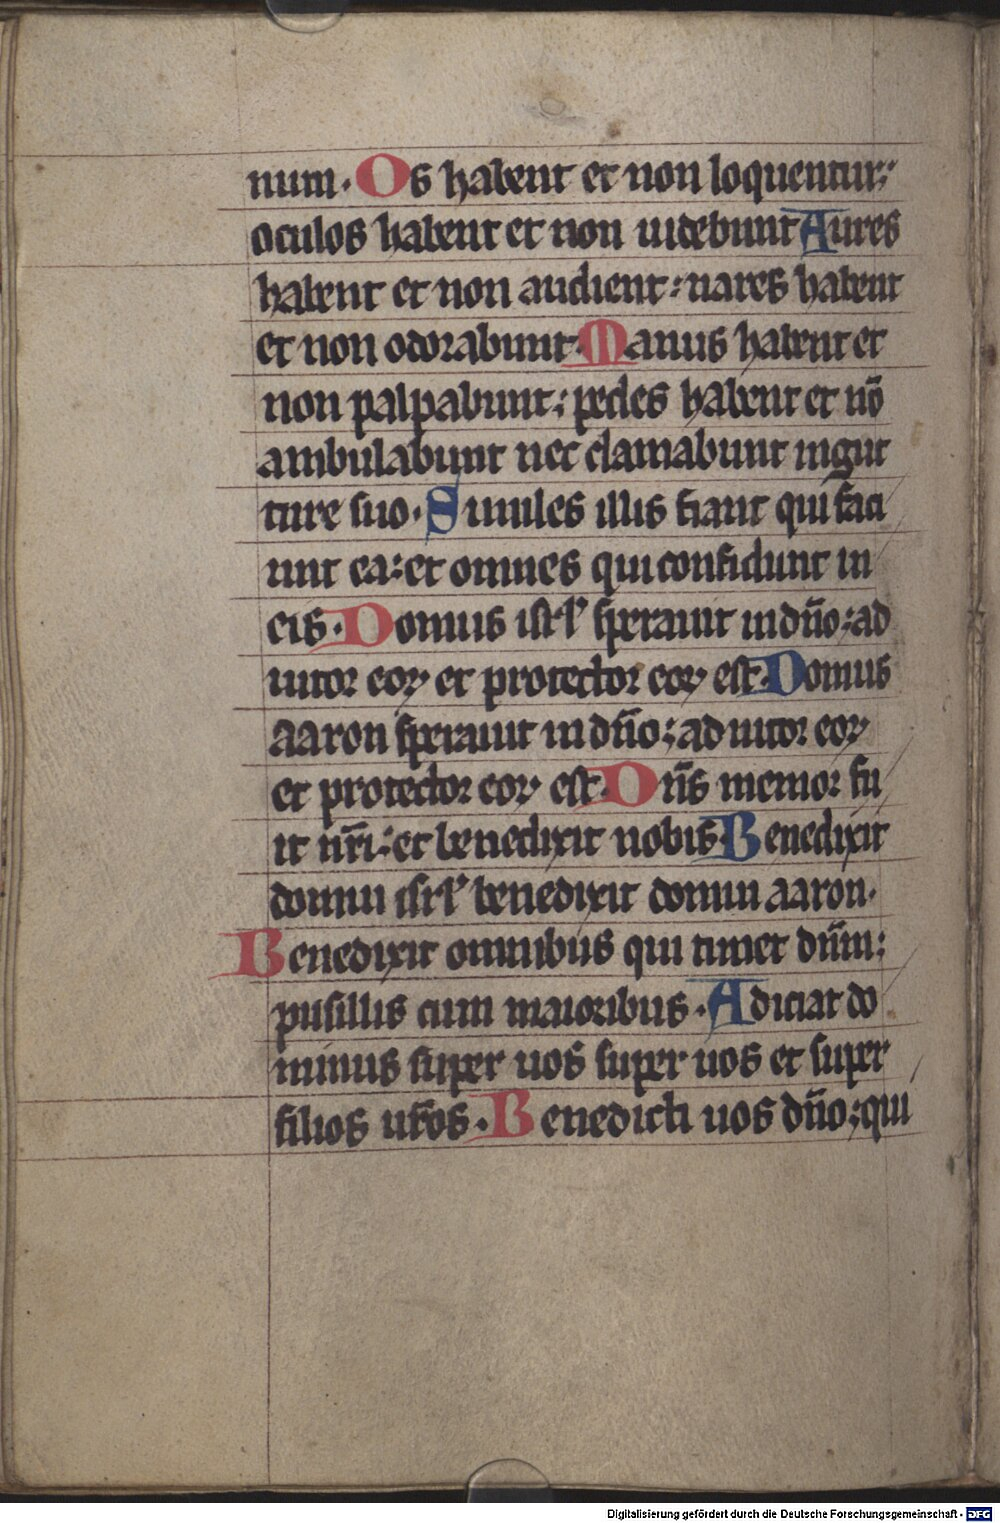 num. Os habent et non loquentur:
oculos habent et non uidebunt Aures
habent et non audient: nares habent
et non odorabunt. Manus habent et
non palpabunt: pedes habent et nō
ambulabunt nec clamabunt ingut
ture suo. Similes illis fiant qui faci
unt ea: et omnes qui confidunt in
eis. Domus isrl' sperauit in dn̄o: ad
iutor eoꝝ et protector eoꝝ est. Domus
aaron sperauit in dn̄o: adiutor eoꝝ
et protector eoꝝ est. Dn̄s memor fu
it nr̄i: et benedixit nobis. Benedixit
domui isrl' benedixit domui aaron.
Benedixit omnibus qui timet dn̄m:
pusillis cum maioribus. Adiciat do
minus super uos super uos et super
filios ur̄os. Benedicti uos dn̄o: qui
Digitalisierung gefördert durch die Deutsche Forschungsgemeinschaft - DFG